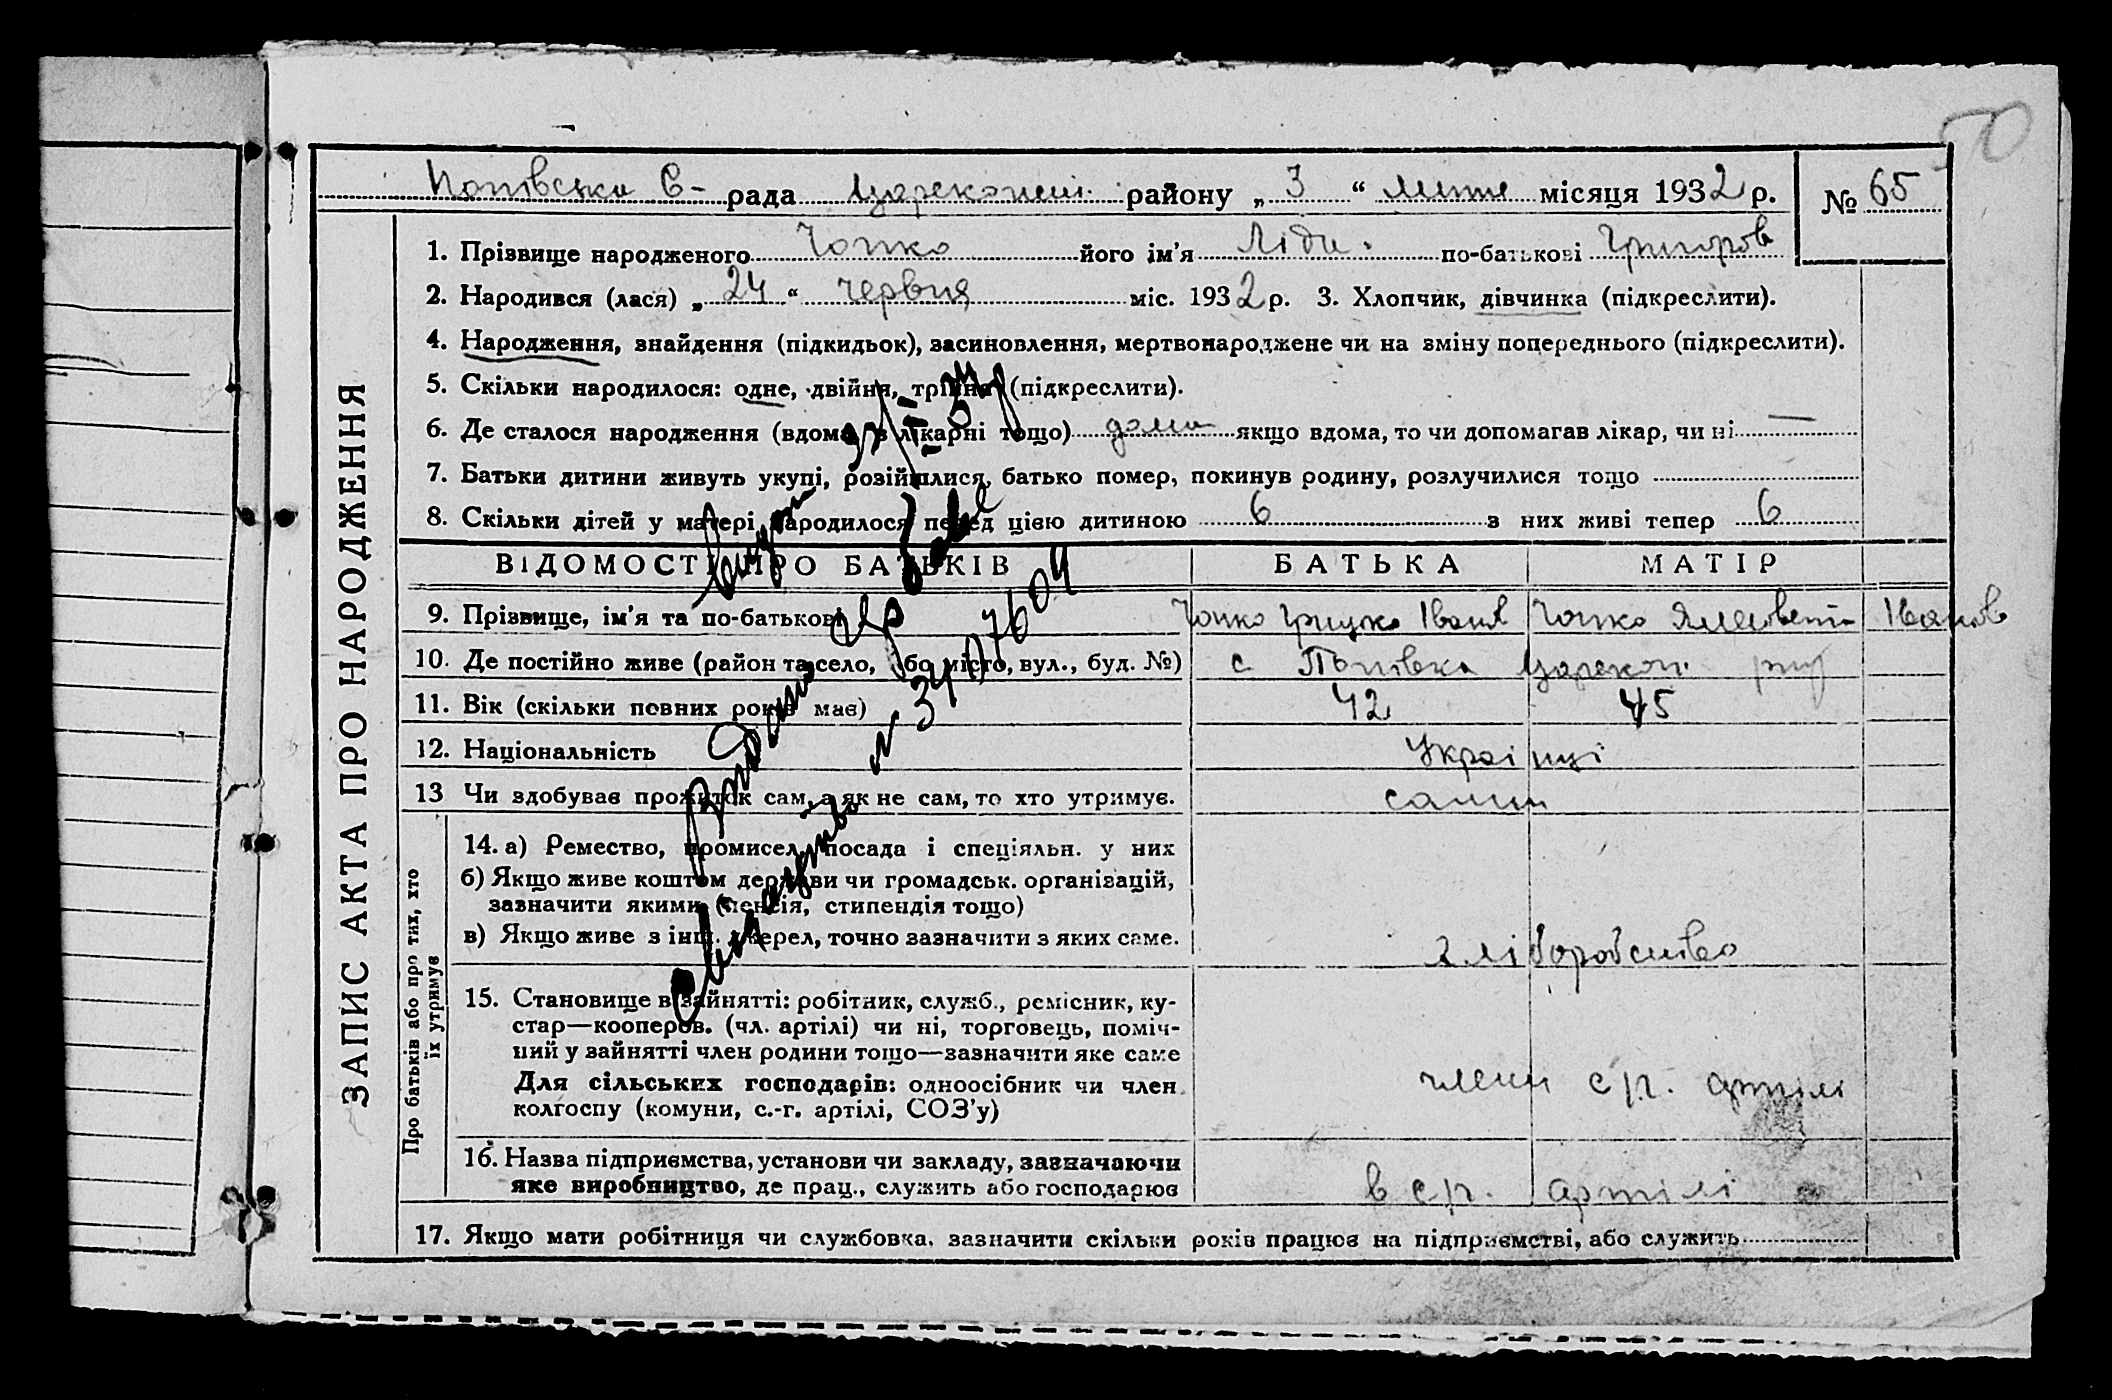 50
Попівська С- рада Царекопсні району „ 3 “ липня місяця 1932 р. № 65
ЗАПИС АКТА ПРО НАРОДЖЕННЯ
1. Прізвище народженого Чопко його ім’я Ліда по-батькові Григоров
2. Народився (лася) „ 24 “ червня міс. 1932 р. 3. Хлопчик, дівчинка (підкреслити).
4. Народження, знайдення (підкидьок), засиновлення, мертвонароджене чи на зміну попереднього (підкреслити).
5. Скільки народилося: одне, двійня, трійня (підкреслити).
6. Де сталося народження (вдома, в лікарні тощо) дома якщо вдома, то чи допомагав лікар, чи ні —
7. Батьки дитини живуть укупі, розійшлися, батько помер, покинув родину, розлучилися тощо
8. Скільки дітей у матері народилося перед цією дитиною 6 з них живі тепер 6
ВІДОМОСТІ ПРО БАТЬКІВ БАТЬКА МАТІР
9. Прізвище, ім’я та по-батькові Чопко Грицько Іванів Чопко Ялисовета Іванов
10. Де постійно живе (район та село, або місто, вул., буд. №) с Попівка Царекоп.
11. Вік (скільки повних років має) 42 45
12. Національність Українці
13 Чи здобував прожиток сам, а як не сам, то хто утримує. сами
Про батьків або про тих, хто їх утримує
14. а) Ремество, промисел, посада і спеціяльн. у них
б) Якщо живе коштом держави чи громадськ. організацій,
зазначити якими (пенсія, стипендія тощо)
в) Якщо живе з інш. джерел, точно зазначити з яких саме. хліборобство
15. Становище в зайнятті: робітник, служб., ремісник, ку-
стар—кооперов. (чл. артілі) чи ні, торговець, поміч-
ний у зайнятті член родини тощо—зазначити яке саме
Для сільських господарів: одноосібник чи член
колгоспу (комуни, с.-г. артілі, СОЗ’у) члени с/г. артілі
16. Назва підприємства, установи чи закладу, зазначаючи
яке виробництво, де прац., служить або господарює в с/г. артілі
17. Якщо мати робітниця чи службовка, зазначити скільки років працює на підприємстві, або служить
Видано